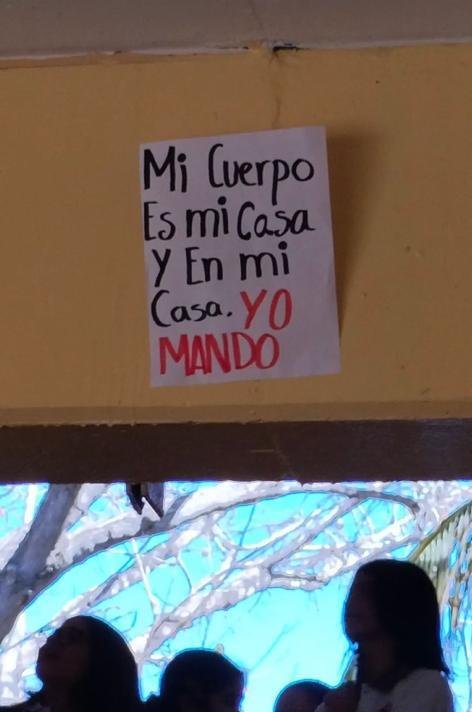 Mi Cuerpo
Es mi Casa
Y En mi
Casa. YO
MANDO